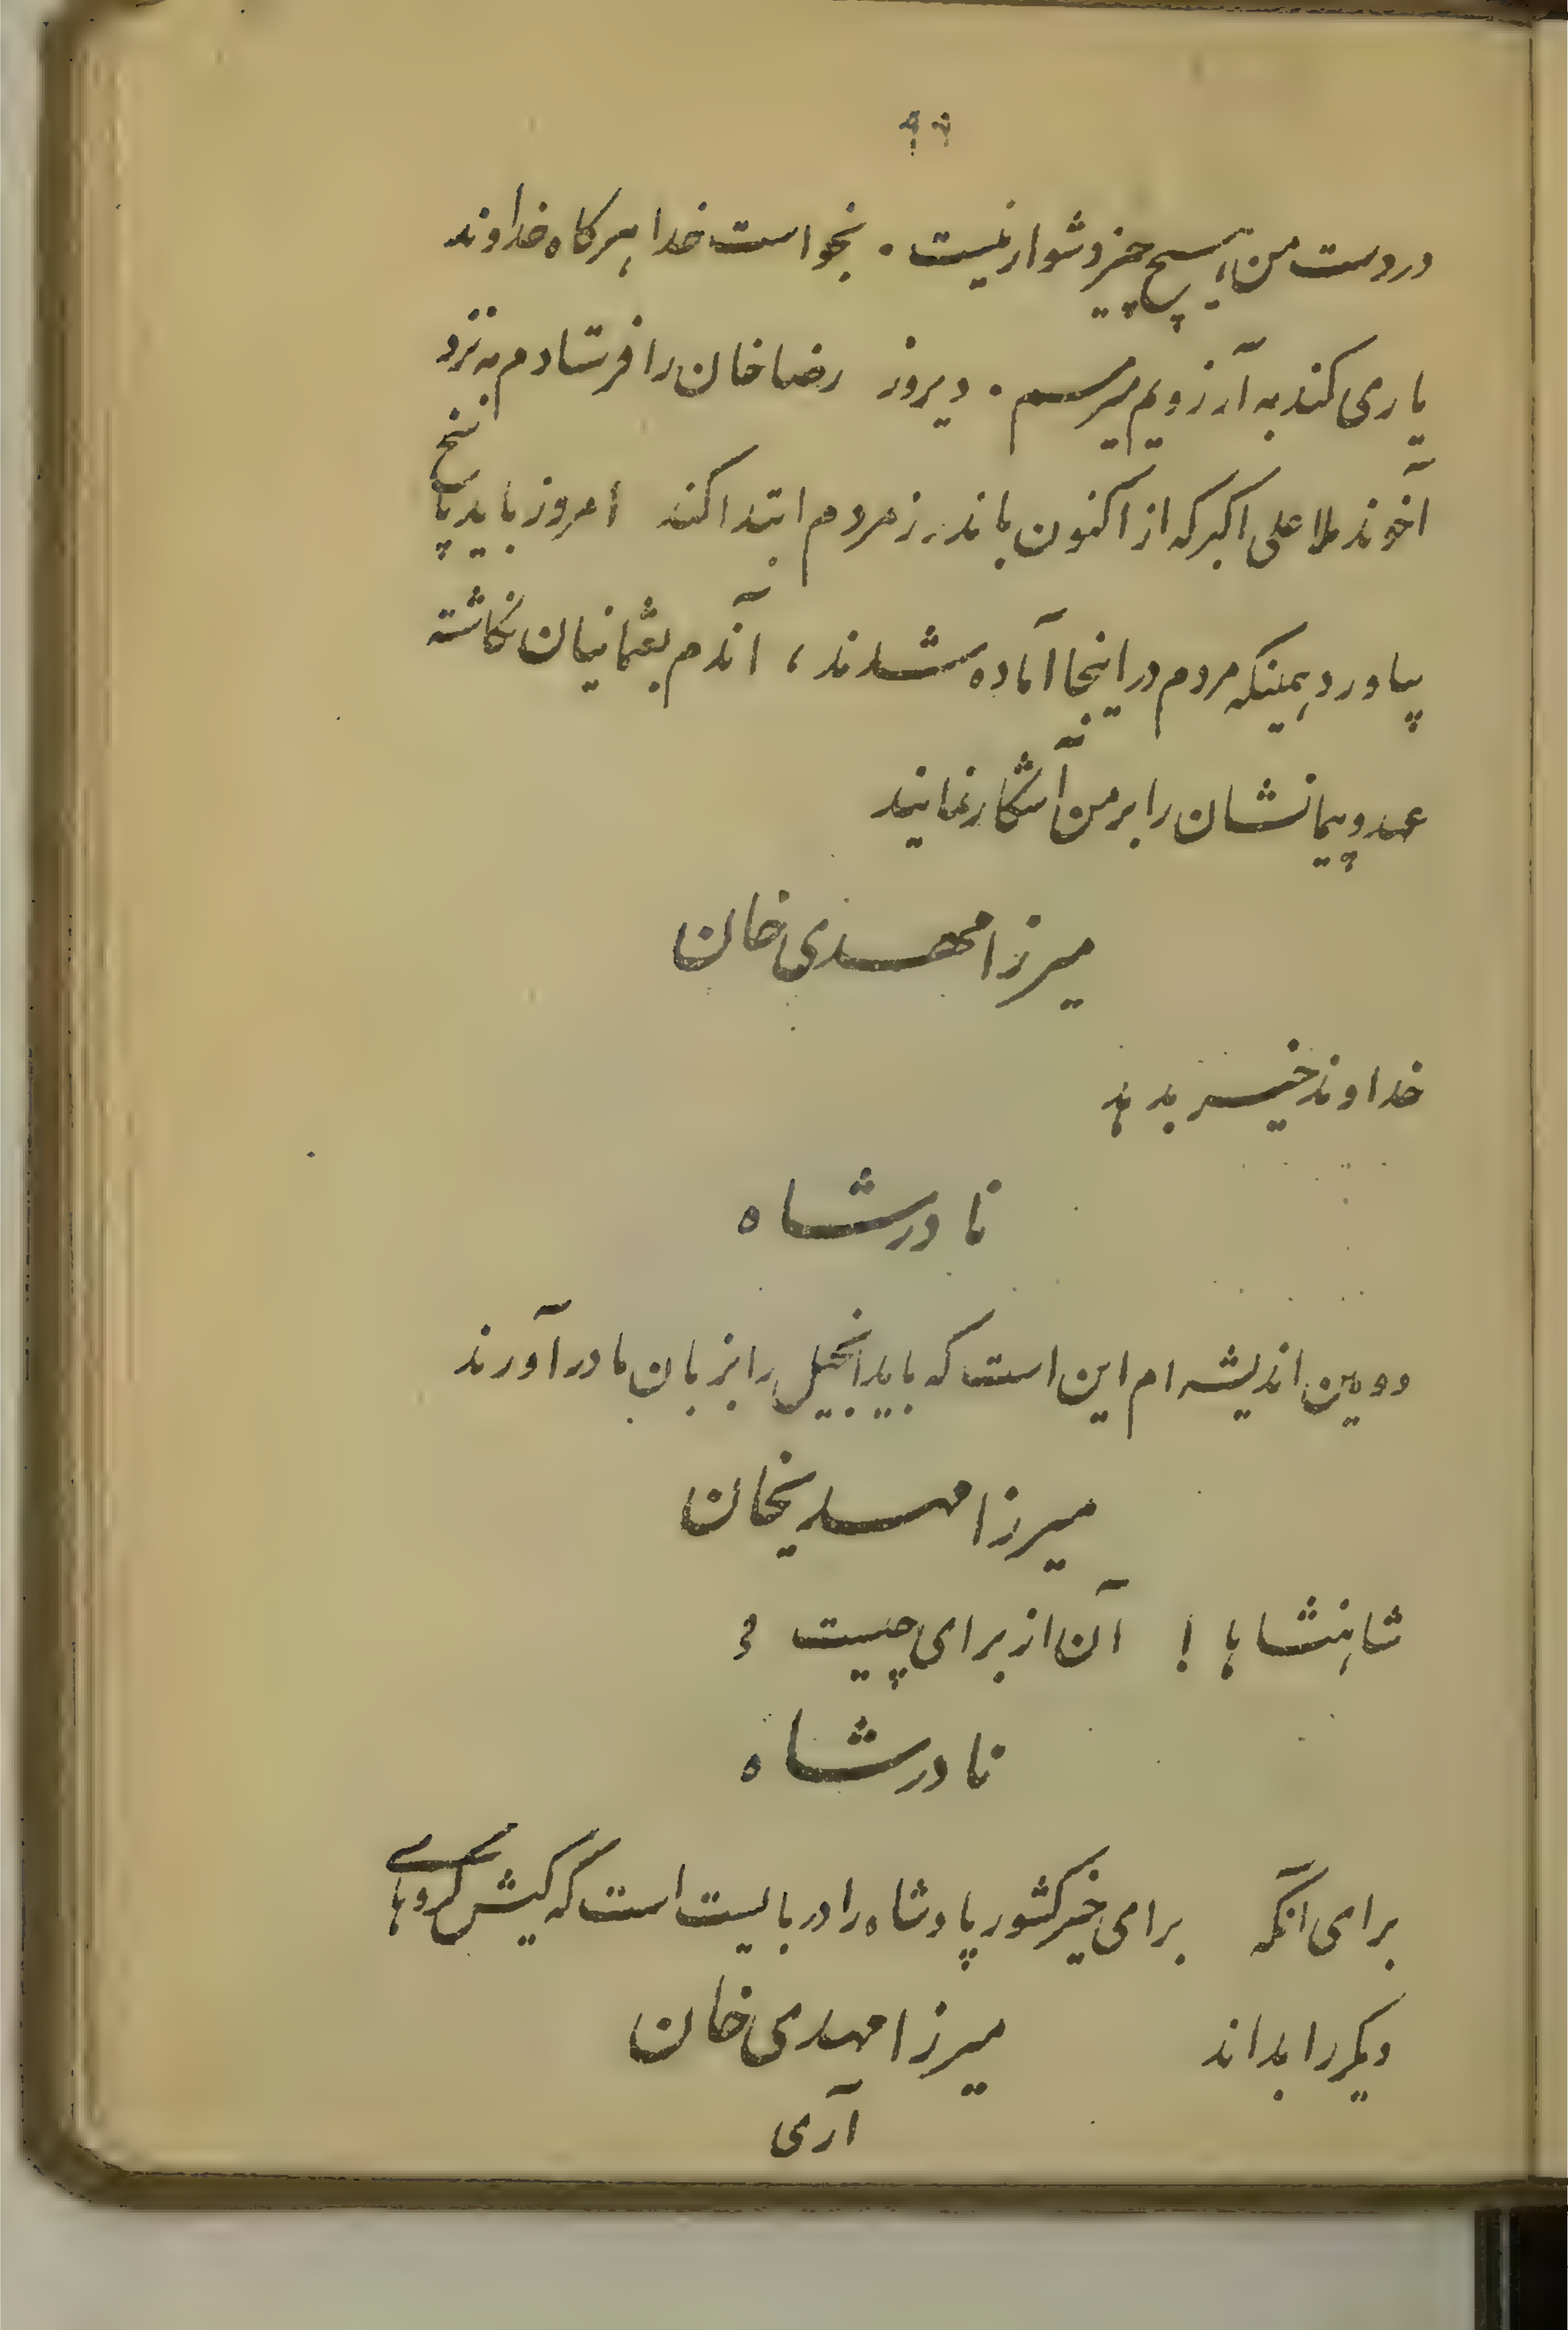 در دست من هیچ چیز دشوار نیست . بخواست خدا هرگاه خداوند
یاری کند به آرزویم میرسم . دیروز رضا خان را فرستادم به نزد
آخوند ملا علی اکبر که از اکنون باندرز مردم ابتدا کند امروز باید پاسخ
بیاورد همینکه مردم در اینجا آماده شدند ، آندم بعثمانیان نگاشته
عهد و پیمانشان را بر من آشکار نمایند
میرزا مهدی خان
خداوند خیر بدهد
نادر شاه
دومین اندیشه ام این است که باید انجیل را بزبان ما در آورند
میرزا مهدیخان
شاهنشاها ! آن از برای چیست ؟
نادر شاه
برای آنکه برای خیر کشور پادشاه را در بایست است که کیش گروهای
دیگر را بداند میرزا مهدی خان
آری